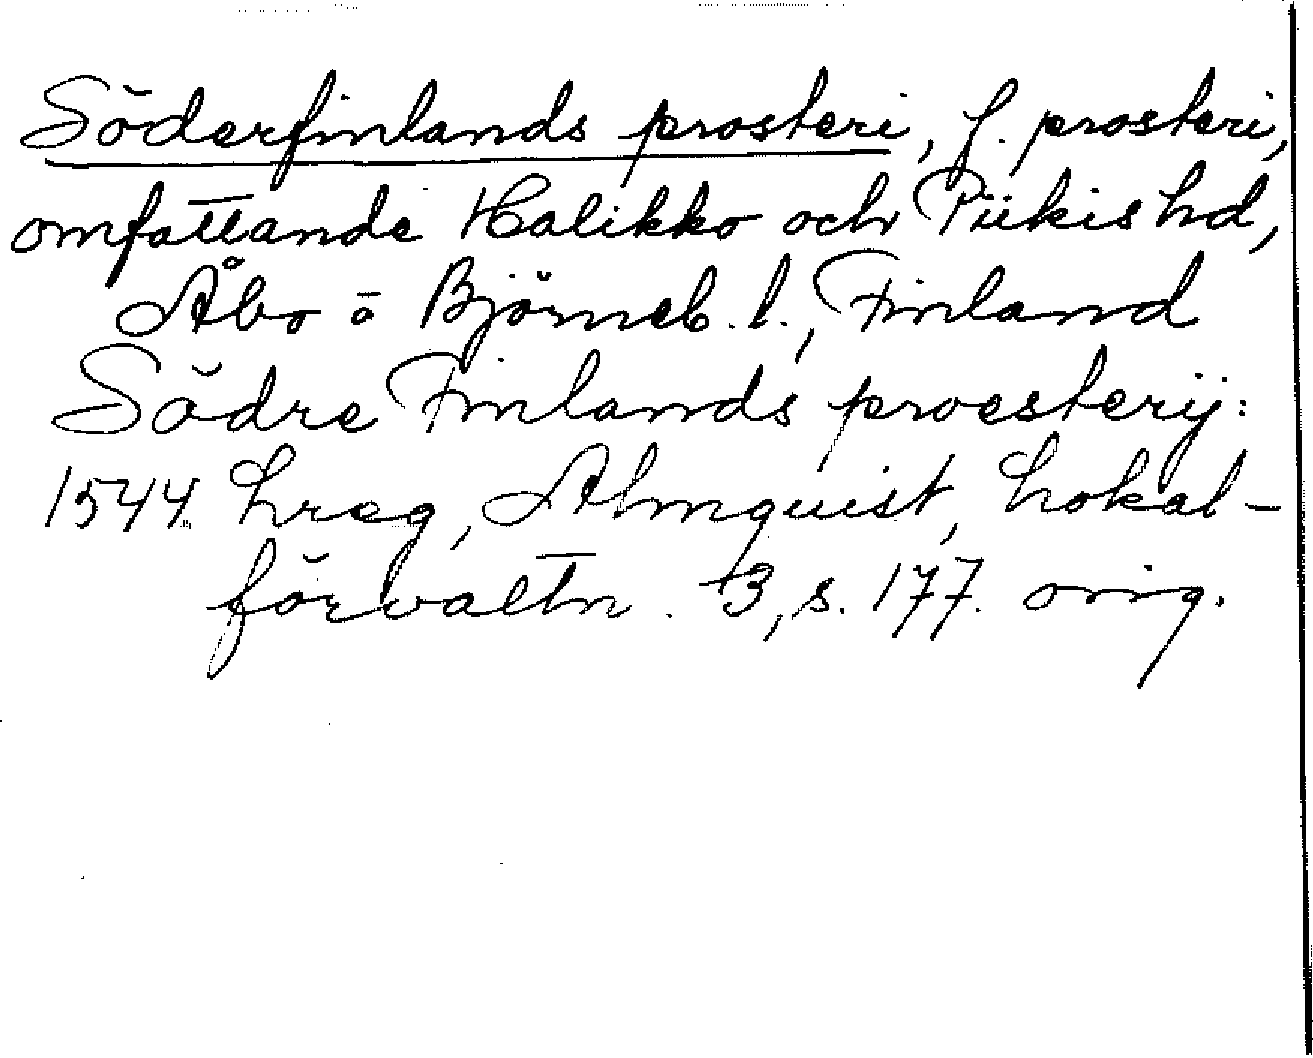 Söderfinlands prosteri, f. prosteri,
omfattande Halikko och Piikis hd,
Åbo o Björneb. l., Finland
Södre Finlands proesterij:
1544 Lreg, Almquist, Lokal-
förvaltn. 3, s. 177. orig.